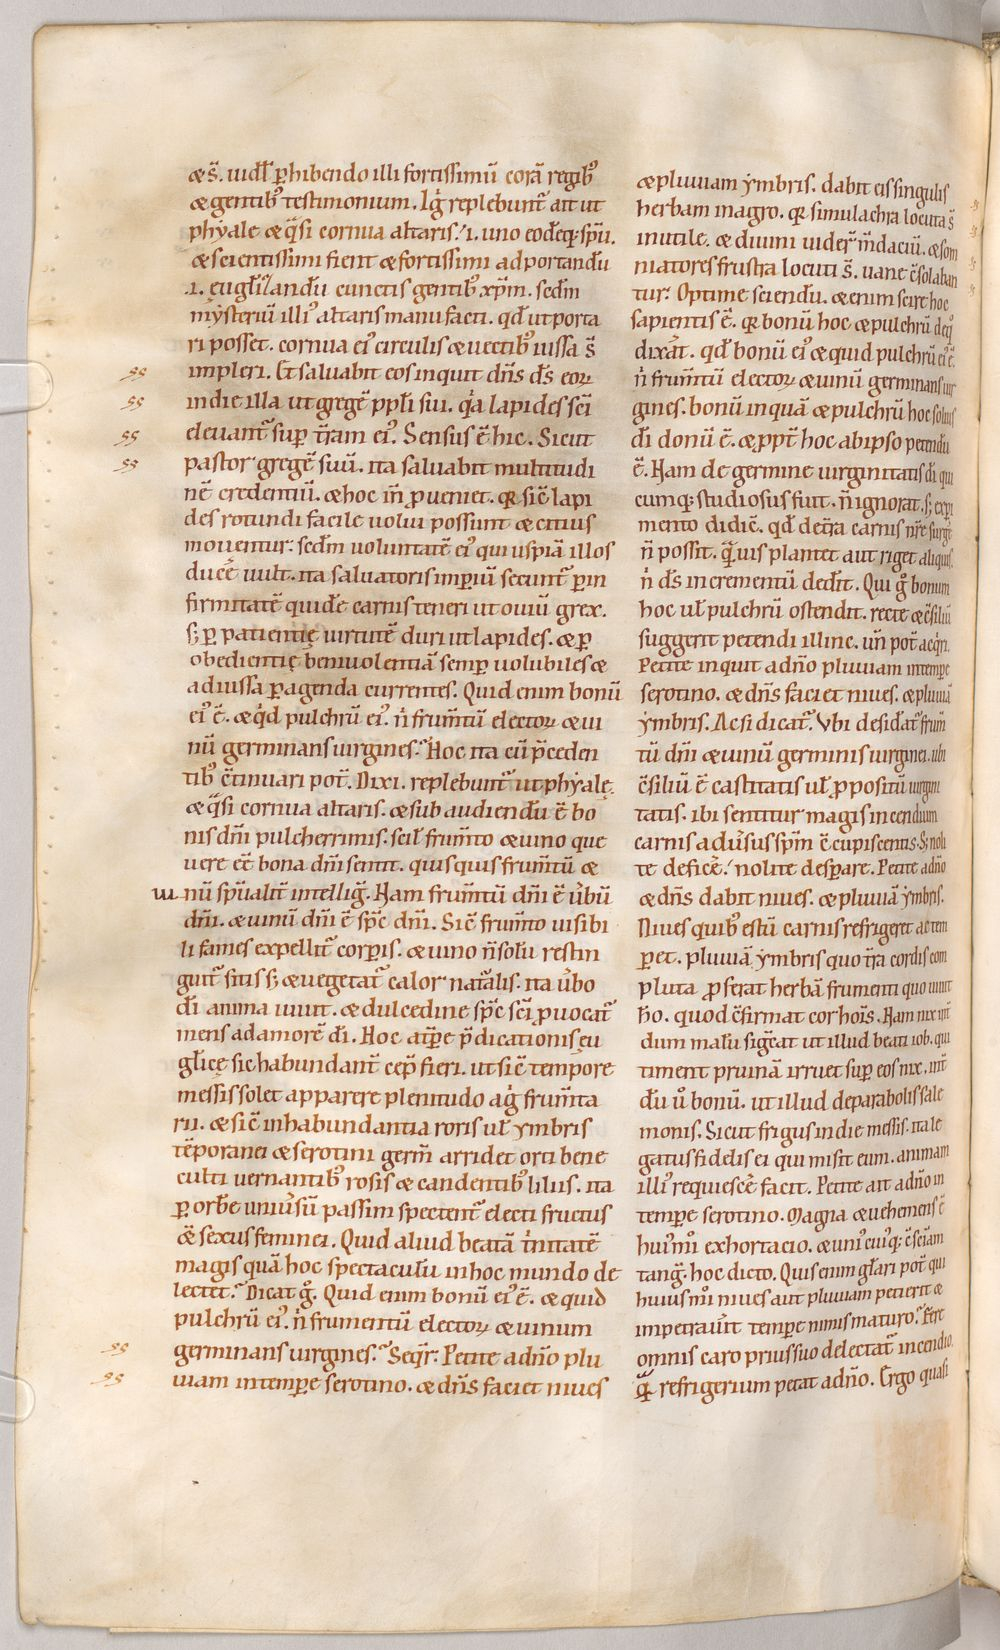 æ s̄. uidl̄ ꝑhibendo illi fortissimū corā regib᷒
æ gentib᷒ testimonium. Igi᷒ replebunt᷒ ait ut
phẏale æ q̄si cornua altaris. / .i. uno eodēq; sp̄u.
æ scientissimi fient æ fortissimi ad portandū
.i. eugl̄ilandū cunctis gentib᷒ xp̄m. scdm̄
mẏsteriū illi᷒ altaris manu facti. qd̄ ut porta
ri posset. cornua ei᷒ circulis æ uectib᷒ iussa s̄
impleri. Et saluabit eos inquit dn̄s ds̄ eoꝝ
in die illa ut gregē ppl̄i sui. qa lapides sc̄i
eleuant᷒ suꝑ tr̄am ei᷒. Sensus ē hic. Sicut
pastor gregē suū. ita saluabit multitudi
nē credentiū. æ hoc in̄ ꝓueniet. qꝛ sic̄ lapi
des rotundi facile uolui possunt æ citius
mouentur. scdm̄ uoluntatē ei᷒ qui uspiā illos
ducē uult. ita saluatoris imperiū secunt᷒ ꝑ in
firmitatē quidē carnis teneri ut ouiū grex.
s; ꝑ patientię uirtutē duri ut lapides. æ ꝑ
obedientię beniuolentiā semꝑ uolubiles æ
ad iussa ꝑagenda currentes. Quid enim bonū
ei᷒ ē. æ qd pulchrū ei᷒. n̄ frum̄tū electoꝝ æ ui
nū germinans uirgines. Hoc ita cū p̄ceden
tib᷒ c̄tinuari pot̄. Dixi. replebunt᷒ ut phẏalę
æ q̄si cornua altaris. æ sub audiendū ē bo
nis dn̄i pulcherrimis. scil̄ frum̄to æ uino que
uere ēē bona dn̄i sentit. quisquis frum̄tū æ
ui nū sp̄ualit̄ intelliḡ. Nam frum̄tū dn̄i ē ūbū
dn̄i. æ uinū dn̄i ē sp̄c dn̄i. Sic̄ frum̄to uisibi
li fames expellit᷒ corꝑis. æ uino n̄ solū restin
guit᷒ sitis s; æ uegetat᷒ calor nat᷒alis. ita ūbo
dī anima uiuit. æ dulcedine sp̄c sc̄i ꝓuocat᷒
mens ad amorē dī. Hoc atꝑe p̄dicationis eu
gl̄icę sic habundant᷒ cep̄ fieri. ut sic̄ tempore
messis solet apparere plenitudo ag᷒ frum̄ta
rii. æ sic̄ in habundantia roris ul̄ ymbris
tēporanei æ serotini germ̄ arridet orti bene
culti uernantib᷒ rosis æ candentib᷒ liliis. ita
ꝑ orbē uniūsū passim spectent᷒ electi fructus
ǣ sexus feminei. Quid aliud beatā t᷒nitatē
magis quā hoc spectaculū in hoc mundo de
lectet. Dicat g᷒. Quid enim bonū ei᷒ ē. æ quid
pulchrū ei᷒. n̄ frumentū electoꝝ æ uinum
germinans uirgines. Seq̄r. Petite a dn̄o plu
uiam in temꝑe serotino. æ dn̄s faciet niues
æ pluuiam ẏmbris. dabit eis singulis
herbam in agro. qꝛ simulachra locuta s̄
inutile. æ diuini uider̄ m̄daciū. æ som
niatores frustra locuti s̄. uane c̄solaban
tur. Optime sciendū. æ enim scire hoc
sapientis ē. qꝛ bonū hoc æ pulchrū de q᷒
dixāt. qd̄ bonū ei᷒ æ quid pulchrū ei᷒ ē.
n̄ frum̄tū electoꝝ æ uinū germinans uir
gines. bonū inquā æ pulchrū hoc solius
dī donū ē. æ ꝓpt̄ hoc ab ipso petendū
ē. Nam de germine uirginitatis dī qui
cumq; studiosus fuit. n̄ ignorat. s; expi
mento didic̄. qd̄ de tr̄a carnis nr̄e surgē
n̄ possit. q̄uis plantet aut riget aliquis.
n̄ ds̄ incrementū dedit̄. Qui g᷒ bonum
hoc ul̄ pulchrū ostendit. recte æ c̄siliū
suggerit petendi illinc. un̄ pot̄ acq᷒ri.
Petite inquit a dn̄o pluuiam in tempe
serotino. æ dn̄s faciet niues. æ pluuiā
ẏmbris. Ac si dicat᷒. Vbi desid̄at᷒ frum̄
tū dn̄i æ uinū germinis uirginei. ubi
c̄siliū ē castitatis ul̄ ꝓpositū uirgini
tatis. ibi sentitur magis incendium
carnis adūsus sp̄m c̄cupiscentis. S; noli
te deficē. / nolite desꝑare. Petite a dn̄o
æ dn̄s dabit niues. æ pluuiā ẏmbris.
Niues quib᷒ estū carnis refrigeret ac tem
ꝑet. pluuiā ẏmbris quo tr̄a cordis com
pluta ꝓferat herbā frumenti quo uiuit
h̄o. quod c̄firmat cor hoīs. Nam nix int̄
dum malū sig᷒cat ut illud beati iob. qui
timent pruinā irruet suꝑ eos nix. int̄
dū ū bonū. ut illud de parabolis salo
monis. Sicut frigus in die messis. ita le
gatus fidelis ei qui misit eum. animam
illi᷒ requiescē facit. Petite ait a dn̄o in
temꝑe serotino. Magna æ uehemens ē
hui᷒mi᷒ exhortatio. æ uni᷒ cui᷒q; c̄sciam
tang̃. hoc dicto. Quis enim gl̄ari pot̄ qui
huiusmi᷒ niues aut pluuiam petierit æ
impetrauīt temꝑe nimis maturo. Fere
omnis caro prius suo delectat᷒ incendio.
q̄ refrigerium petat a dn̄o. Ergo quasi